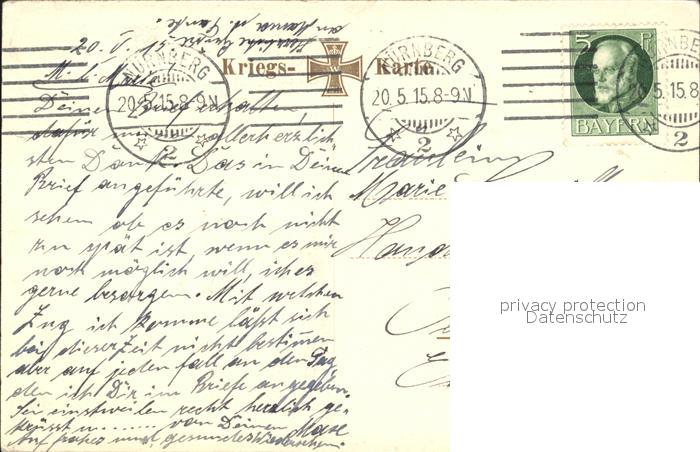 Herzliche Grüsse
an Mama u.
20. V. 15.
M. l.
Kriegs- Karte
NÜRNBERG
20.5.15.8-9N
2
NÜRNBERG
20.5.15.8-9N
2
5 Pf
BAYERN
20.5.15.8
2
Deinen Brief erhalten,
dafür allerherzlich
sten Dank. Das in Deinem
Brief angeführte, will ich
sehen ob es noch nicht
zu spät ist, wenn es mir
noch möglich will, ich es
gerne besorgen. Mit welchen
Zug ich komme läßt sich
bei dieser Zeit nicht bestimmen
aber auf jeden fall an den Tag
den ich Dir im Briefe angegeben.
Sei einstweilen recht herzlich ge-
küsst u....... von Deinem
Auf frohes und gesundes Wiedersehen!
Fräulein
Marie
privacy protection
Datenschutz